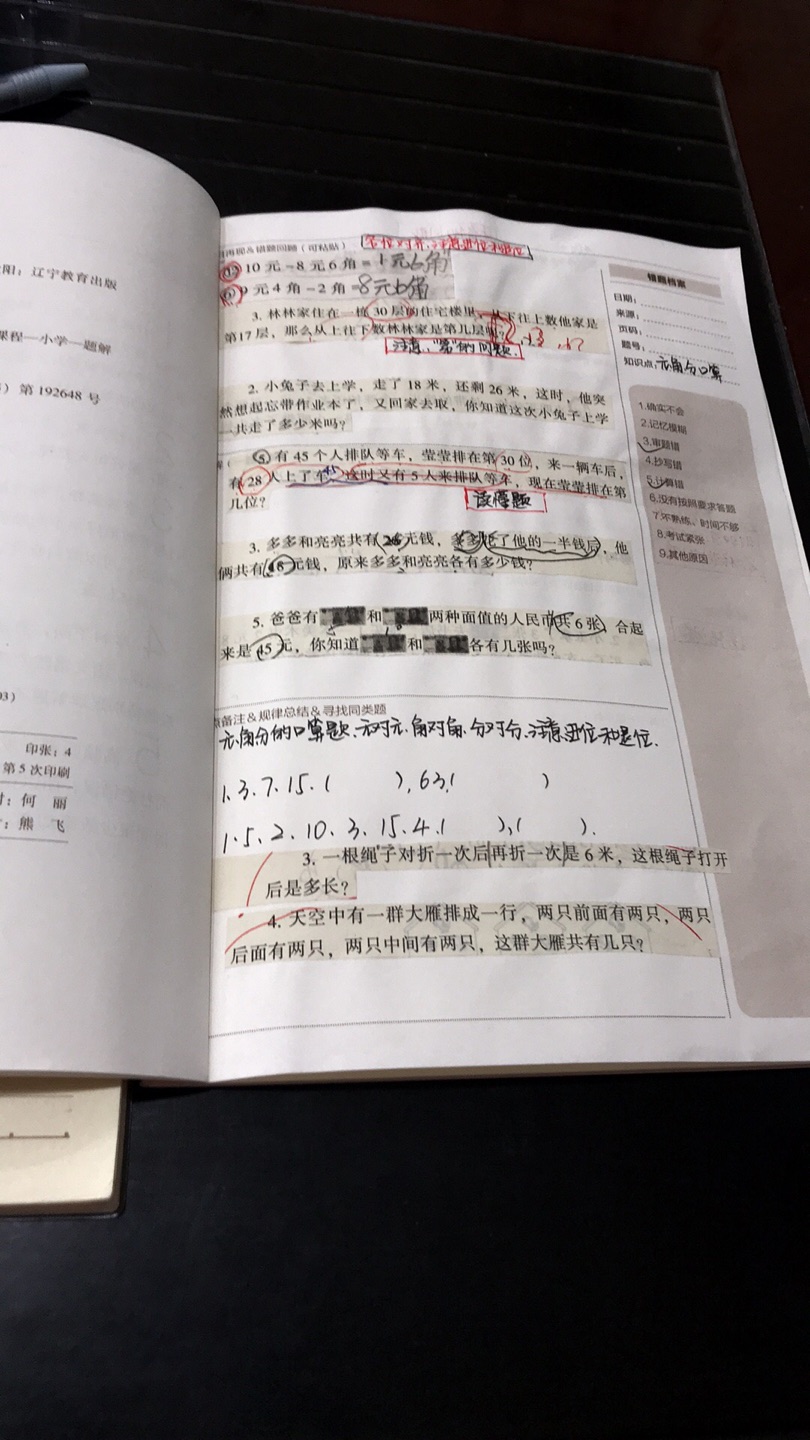 阳：辽宁教育出版
课程—小学—题解
）第 192648 号
03）
印张：4
第 5 次印刷
时：何 丽
：熊 飞
再现&错题回顾（可粘贴）
10 元－8 元 6 角＝1元6角
9 元 4 角－2 角＝8元6角
3. 林林家住在一栋 30 层的住宅楼里，从下往上数他家是
第17 层，那么从上往下数林林家是第几层呢？
注意、"第"的问题.
2. 小兔子去上学，走了 18 米，还剩 26 米，这时，他突
然想起忘带作业本了，又回家去取，你知道这次小兔子上学
一共走了多少米吗？
有 45 个人排队等车，莹莹排在第 30 位，来一辆车后，
有 28 人上了车，这时又有 5 人来排队等车，现在莹莹排在第
几位？
读懂题
3. 多多和亮亮共有 26 元钱，多多花了他的一半钱后，他
俩共有 18 元钱，原来多多和亮亮各有多少钱？
5. 爸爸有 和 两种面值的人民币共 6 张，合起
来是 45 元，你知道 和 各有几张吗？
备注&规律总结&寻找同类题
元角分的口算题、元对元、角对角、分对分、注意进位和退位.
1、3、7、15、( )、63、( )
1、5、2、10、3、15、4、( )、( ).
3. 一根绳子对折一次后再折一次是 6 米，这根绳子打开
后是多长？
4. 天空中有一群大雁排成一行，两只前面有两只，两只
后面有两只，两只中间有两只，这群大雁共有几只？
错题档案
日期：
来源：
页码：
题号：
知识点：元角分口算
1.确实不会
2.记忆模糊
3.审题错
4.抄写错
5.计算错
6.没有按照要求答题
7.不熟练、时间不够
8.考试紧张
9.其他原因